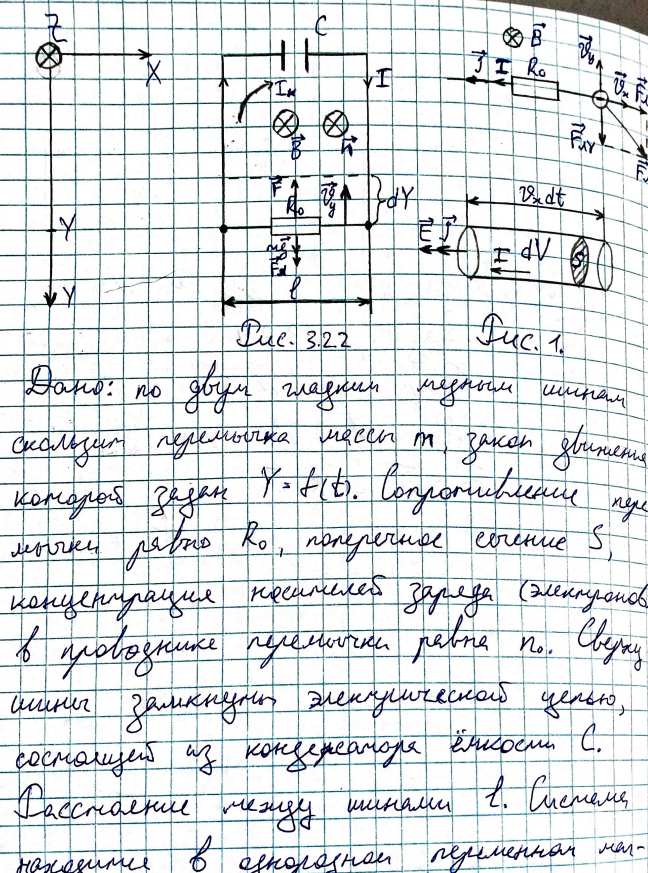 Z
X
Y
Y
C
I
Iк
B
n
F
R₀
v_y
dY
mg
F_A
l
Рис. 3.22
B
j I R₀
v_y
v_x
F_ЛY
F_Л
v_x dt
E j
I dV
S
Рис. 1.
Дано: по двум гладким медным шинам
скользит перемычка массы m, закон движения
которой задан Y = f(t). Сопротивление пере
мычки равно R₀, поперечное сечение S,
концентрация носителей заряда (электронов
в проводнике перемычки равна n₀. Сверху
шины замкнуты электрической цепью,
состоящей из конденсатора ёмкости C.
Расстояние между шинами l. Система
находится в однородном переменном маг-